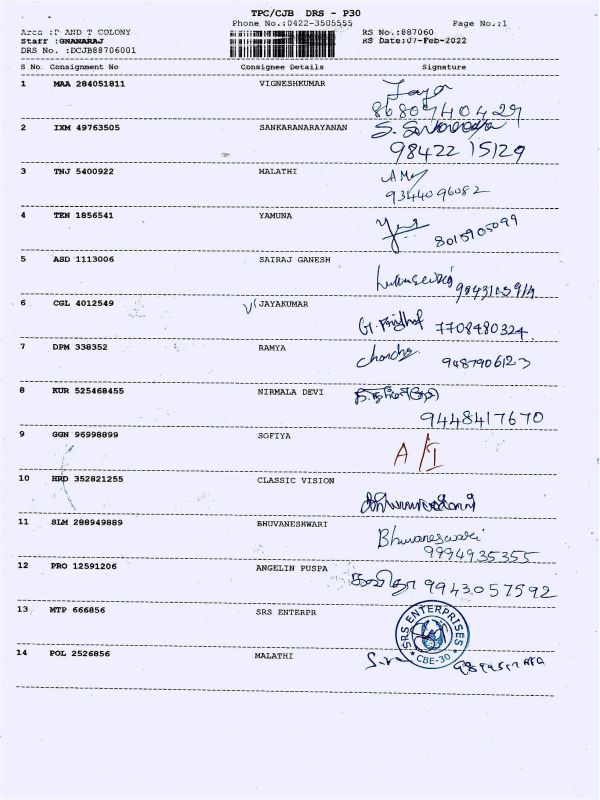 TPC/CJB DRS - P30
Area :P AND T COLONY Phone No.:0422-3505555 Page No.:1
Staff :GNANARAJ RS No.:887060
DRS No. :DCJB88706001 RS Date:07-Feb-2022
S No Consignment No Consignee Details Signature
1 MAA 284051811 VIGNESHKUMAR Jaya
8680940429
2 IXM 49763505 SANKARANARAYANAN
98422 15129
3 TNJ 5400922 MALATHI
9344096082
4 TEN 1856541 YAMUNA
8015905099
5 ASD 1113006 SAIRAJ GANESH
6 CGL 4012549 JAYAKUMAR
7708480324
7 DPM 338352 RAMYA
9487906123
8 KUR 525468455 NIRMALA DEVI
9448417670
9 GGN 96998899 SOFIYA A/I
10 HRD 352821255 CLASSIC VISION
11 SLM 288949889 BHUVANESHWARI Bhuvaneswari
9994935355
12 PRO 12591206 ANGELIN PUSPA 9943057592
13 MTP 666856 SRS ENTERPR SRS ENTERPRISES
CBE-30
14 POL 2526856 MALATHI